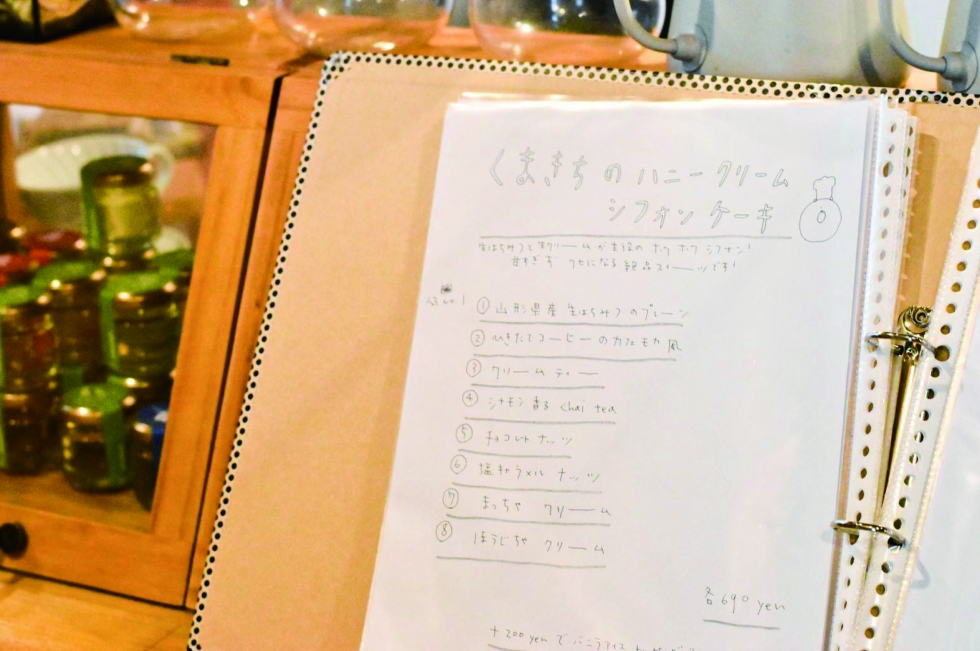 くまきちの ハニークリーム
シフォンケーキ
生はちみつと生クリームが主役の ホワホワ シフォン!
甘すぎず クセになる 絶品スイーツです!
人気 No.1
① 山形県産 生はちみつのプレーン
② ひきたてコーヒーのカフェモカ風
③ クリームティー
④ シナモン香る chai tea
⑤ チョコレートナッツ
⑥ 塩キャラメル ナッツ
⑦ まっちゃ クリーム
⑧ ほうじちゃ クリーム
各690 yen
+200 yen で バニラアイス